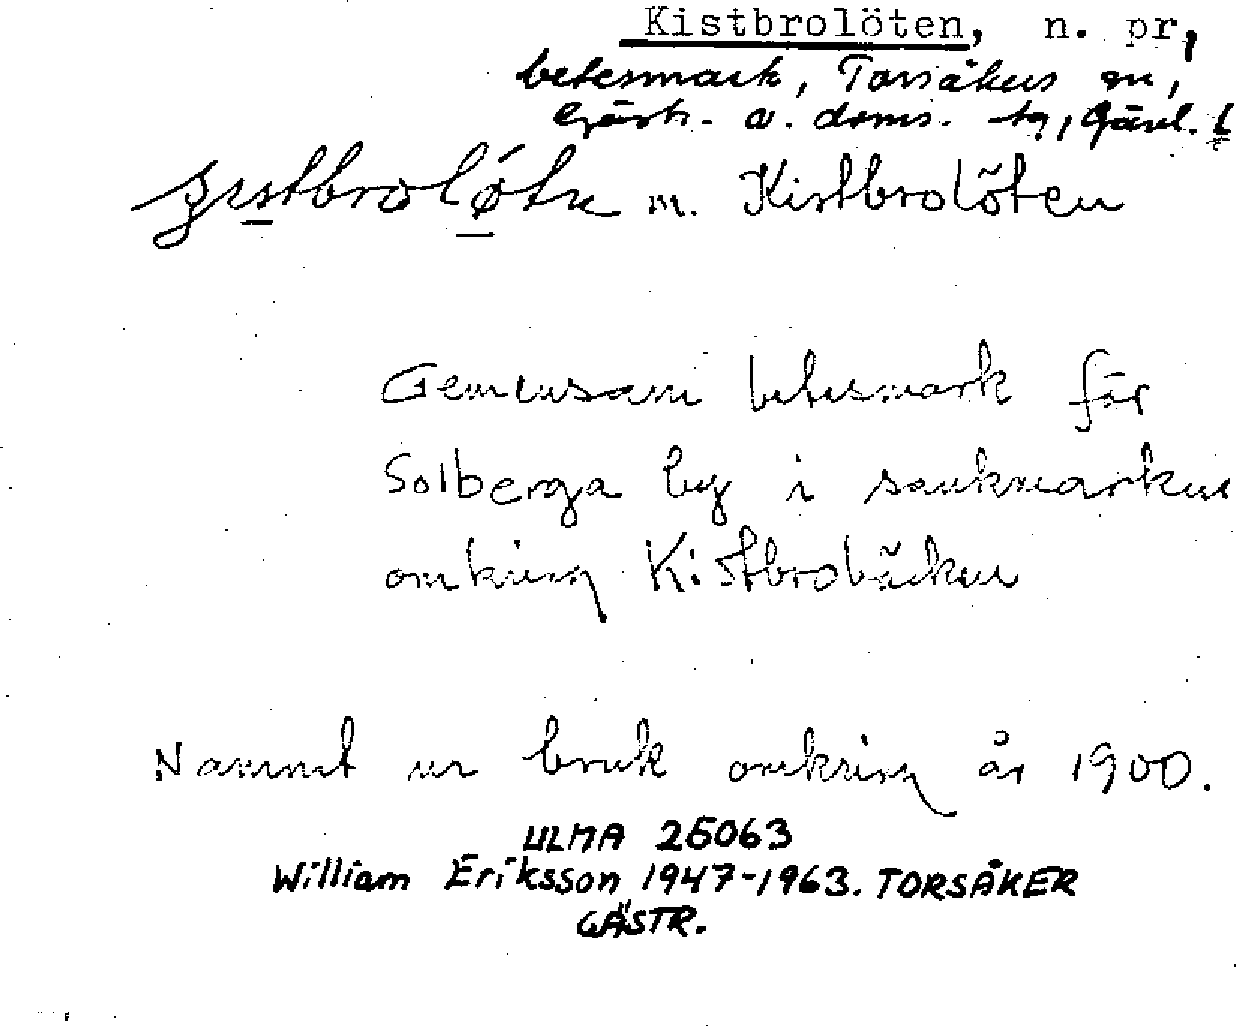 Kistbrolöten, n. pr,
betesmark, Torsåkers sn,
Gästr. ö. doms. tg, Gävl. l
m. Kistbrolöten
Gemensam betesmark för
Solberga by i sankmarken
omkring Kistbrobäcken
Namnet ur bruk omkring år 1900.
ULMA 26063
William Eriksson 1947-1963. TORSÅKER
GÄSTR.